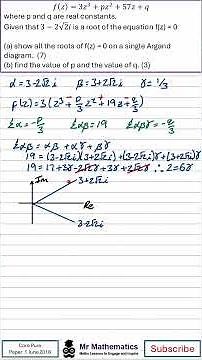 f(z) = 3z³ + pz² + 57z + q
where p and q are real constants.
Given that 3 − 2√2i is a root of the equation f(z) = 0
(a) show all the roots of f(z) = 0 on a single Argand
diagram. (7)
(b) find the value of p and the value of q. (3)
α = 3-2√2i β = 3+2√2i γ = 1/3
f(z) = 3(z³ + p/3 z² + 19z + q/3)
Σα = -p/3 Σαβ = 19 Σαβγ = -q/3
Σαβ = αβ + αγ + βγ
19 = (3-2√2i)(3+2√2i) + (3-2√2i)γ + (3+2√2i)γ
19 = 17 + 3γ - 2√2iγ + 3γ + 2√2iγ ∴ 2 = 6γ
Im
3+2√2i
Re
3-2√2i
Core Pure
Paper 1 June 2018
Mr Mathematics
Maths Lessons to Engage and Inspire
Subscribe